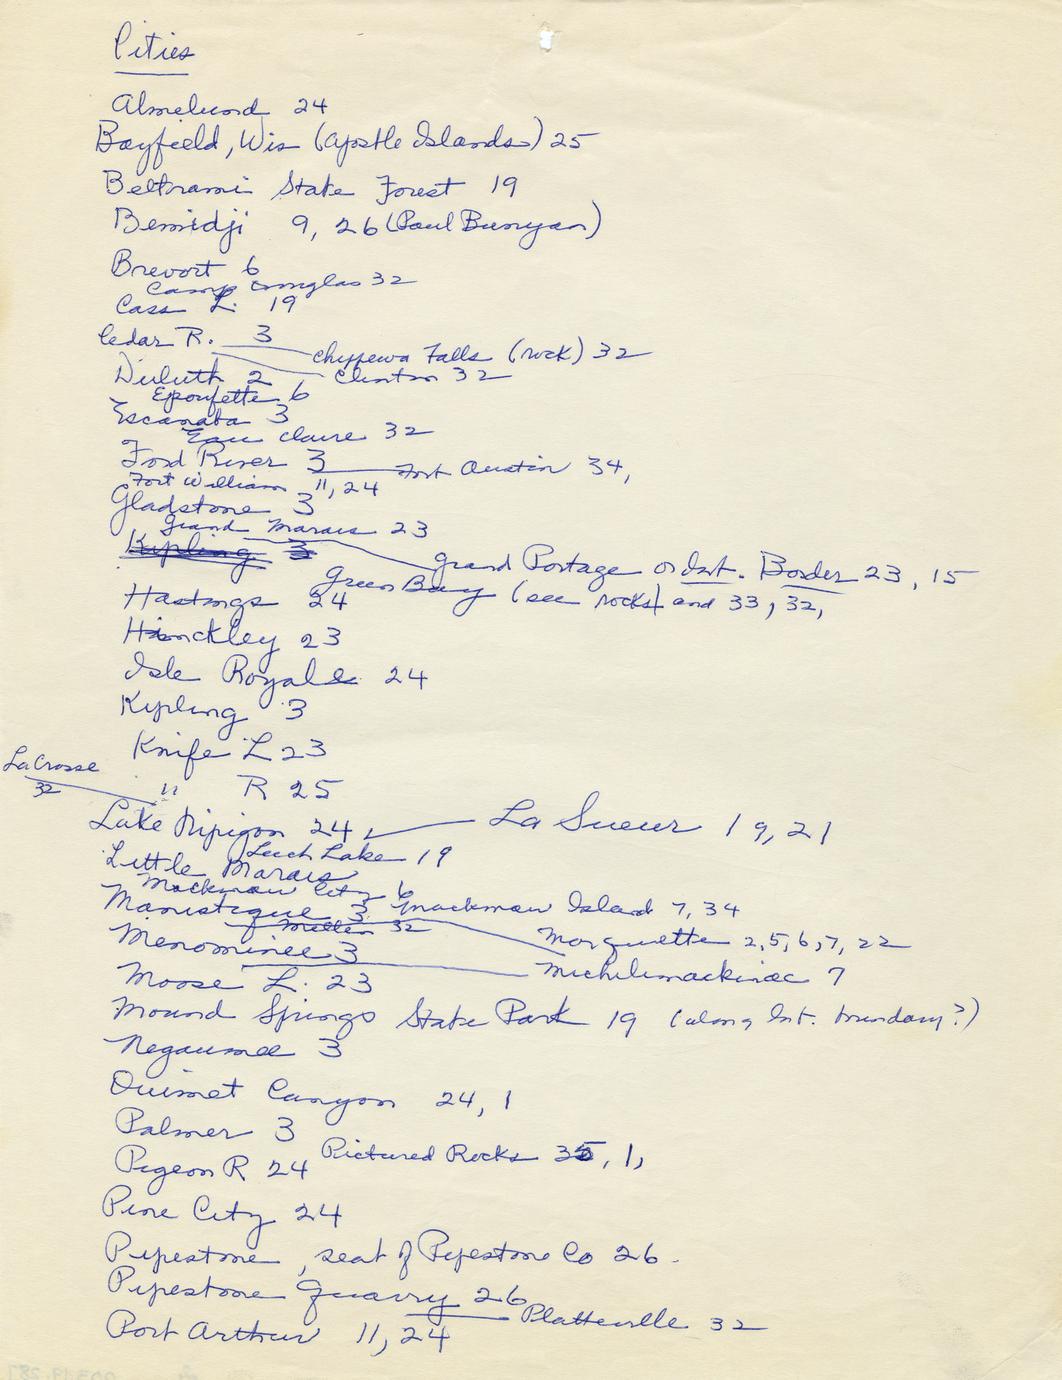 Cities
Almelund 24
Bayfield, Wis (Apostle Islands) 25
Beltrami State Forest 19
Bemidji 9, 26 (Paul Bunyan)
Brevort 6
Camp Douglas 32
Cass L. 19
Cedar R. 3
Chippewa Falls (rock) 32
Duluth 2
Clinton 32
Epoufette 6
Escanaba 3
Eau Claire 32
Ford River 3
Fort Austin 34,
Fort William 11, 24
Gladstone 3
Grand Marais 23
Kipling 3
Grand Portage on Int. Border 23, 15
Green Bay (see rocks) and 33, 32,
Hastings 24
Hinckley 23
Isle Royale 24
Kipling 3
Knife L 23
LaCrosse
32
" R 25
Lake Nipigon 24,
La Sueur 19, 21
Leech Lake 19
Little Marais
Mackinaw City 6
Manistique 3
Mackinaw Island 7, 34
Mellen 32
Marquette 2, 5, 6, 7, 22
Menominee 3
Michilimackinac 7
Moose L. 23
Mound Springs State Park 19 (along Int. boundary?)
Negaunee 3
Ouimet Canyon 24, 1
Palmer 3
Pictured Rocks 35, 1,
Pigeon R 24
Pine City 24
Pipestone, seat of Pipestone Co 26.
Pipestone Quarry 26
Platteville 32
Port Arthur 11, 24